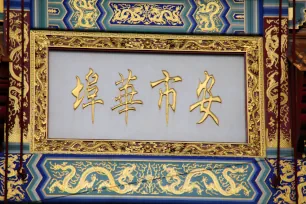 安市華埠